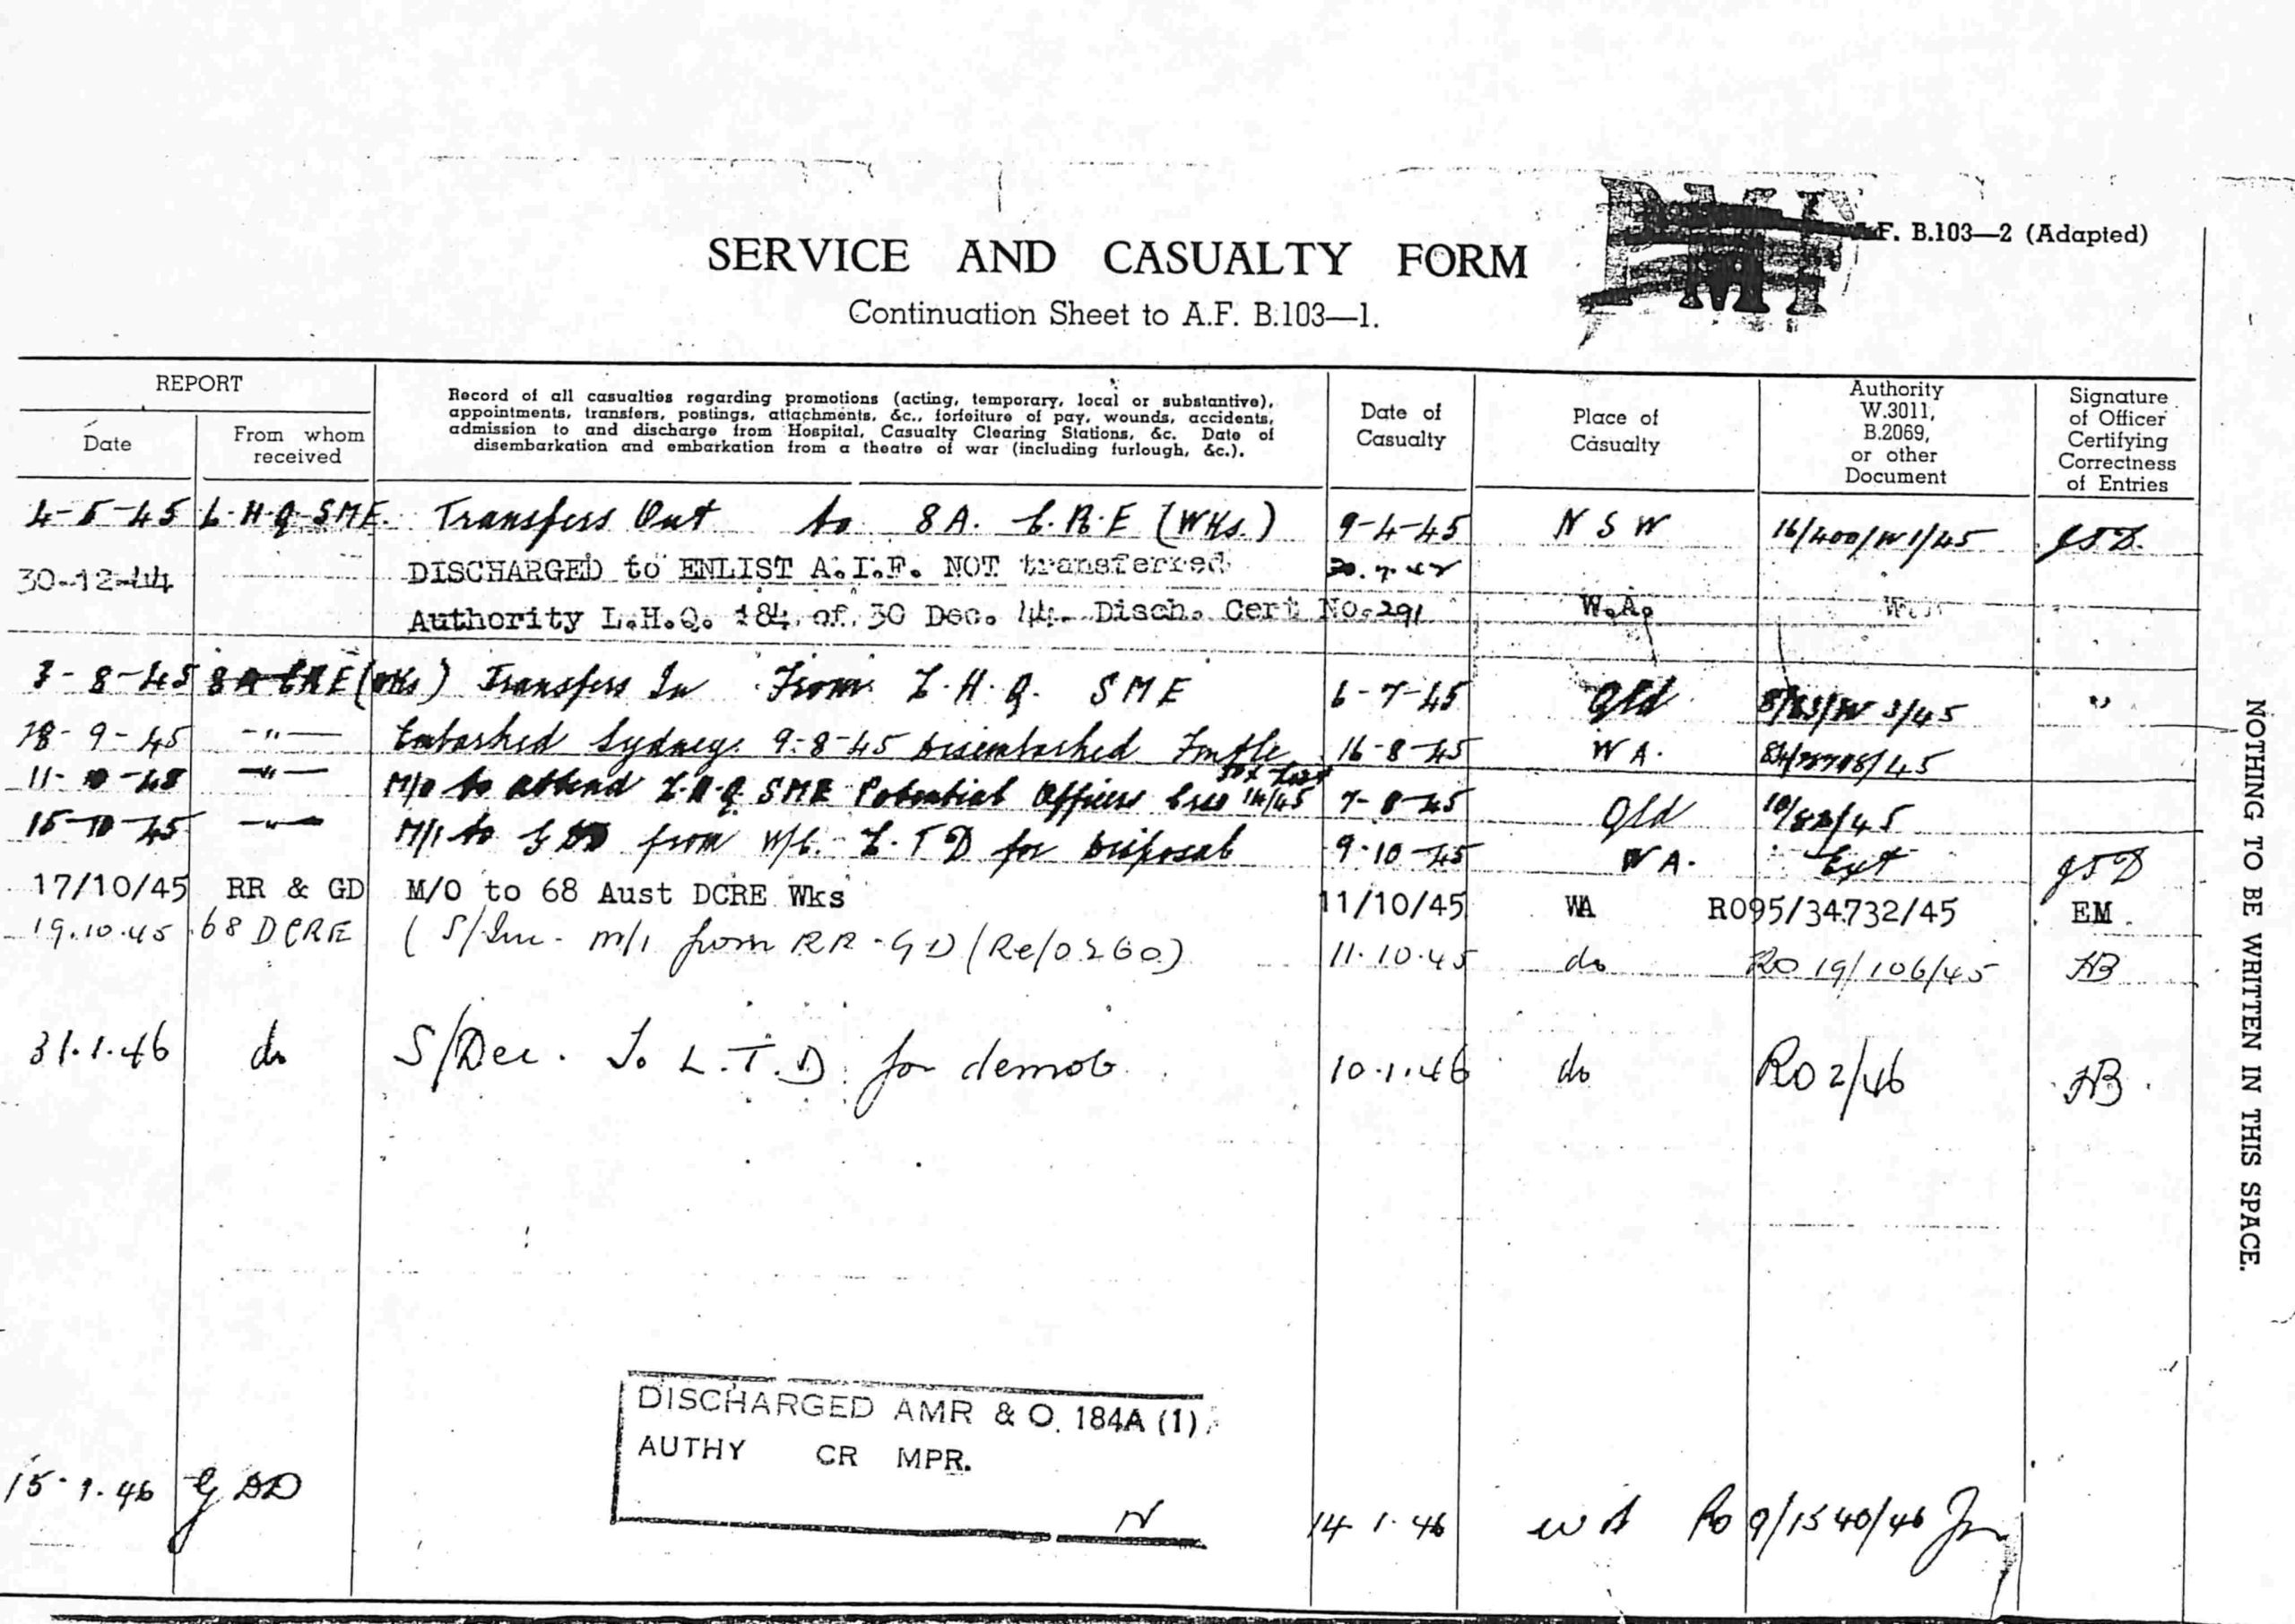 F. B.103—2 (Adapted)
SERVICE AND CASUALTY FORM
Continuation Sheet to A.F. B.103—1.
REPORT
Date
From whom received
Record of all casualties regarding promotions (acting, temporary, local or substantive),
appointments, transfers, postings, attachments, &c., forfeiture of pay, wounds, accidents,
admission to and discharge from Hospital, Casualty Clearing Stations, &c. Date of
disembarkation and embarkation from a theatre of war (including furlough, &c.).
Date of Casualty
Place of Casualty
Authority W.3011, B.2069, or other Document
Signature of Officer Certifying Correctness of Entries
4-5-45 L.H.Q-SME. Transfers Out to 8A. C.R.E (Wks.) 9-4-45 N S W 16/400/W1/45
30-12-44 DISCHARGED to ENLIST A.I.F. NOT transferred
Authority L.H.Q. 184 of 30 Dec. 44. Disch. Cert No. 291 W.A.
3-8-45 8A CRE (Wks) Transfers In From L.H.Q. SME 6-7-45 Qld "
18-9-45 -"- Embarked Sydney 9-8-45 Disembarked 16-8-45 W A.
11-10-45 -"- M/O to attend L.H.Q SME Potential Officers 14/45 7-8-45 Qld
15-10-45 -"- M/I to from W/C. L.T D for Disposal 9-10-45 W A. Ext
17/10/45 RR & GD M/O to 68 Aust DCRE Wks 11/10/45 WA RO95/34732/45 EM
19.10.45 68 DCRE (S/Inc. m/i from RR - GD (Re/0260) 11.10.45 do RO 19/106/45 HB
31.1.46 do S/Dec. To L.T.D. for demob. 10.1.46 do RO 2/46 HB.
DISCHARGED AMR & O. 184A (1)
AUTHY CR MPR.
N
15-1.46 GDD 14 1.46 W A Ro 9/1540/46
NOTHING TO BE WRITTEN IN THIS SPACE.